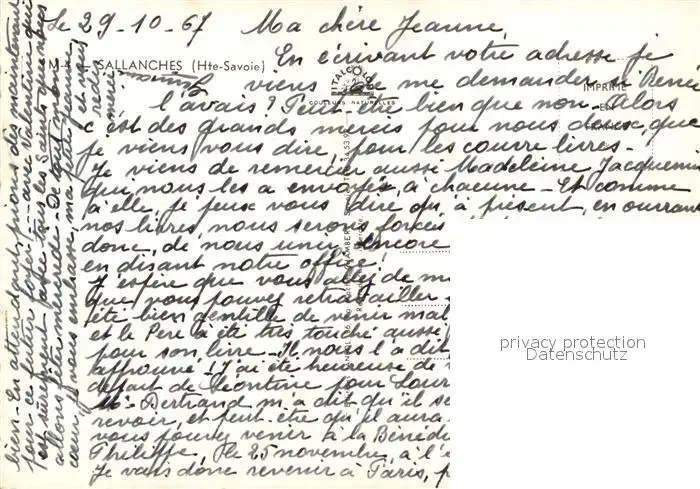 Le 29-10-67 Ma chère Jeanne,
En écrivant votre adresse je
viens de me demander si Béné
l'avais? Peut être bien que non. Alors
c'est des grands mercis pour nous deux, que
je viens vous dire, pour les couvre livres.-
Je viens de remercier aussi Madeleine Jacquemin
qui nous les a envoyés, à chacune - Et comme
à elle, je peux vous dire qu'à présent, en ouvrant
nos livres, nous serons forcés
donc, de nous unir encore
en disant notre office!
J'espère que vous allez de m
que vous pouvez retravailler
été bien gentille de venir mal
et le Père a été très touché aussi
pour son livre - Il nous l'a dit
approuvé! J'ai été heureuse de
départ de Léontine pour Lour
Mr Bertrand m'a dit qu'il se
revoir, et peut-être qu'il aura
vous pourez venir à la Bénédi
Philippe, le 25 novembre, à l'é
Je vais donc revenir à Paris, p
bien - En attendant, prions dès maintenant
pour ce futur foyer - avec Valentine qui
est sûrement parmi tous les Saints que nous
allons fêter mercredi. De tout mon
cœur, je vous embrasse, ma petite Jeanne,
et vous
redis
merci
SALLANCHES (Hte-Savoie)
ITALCOLOR
COULEURS NATURELLES
IMPRIMÉ
EN
privacy protection
Datenschutz